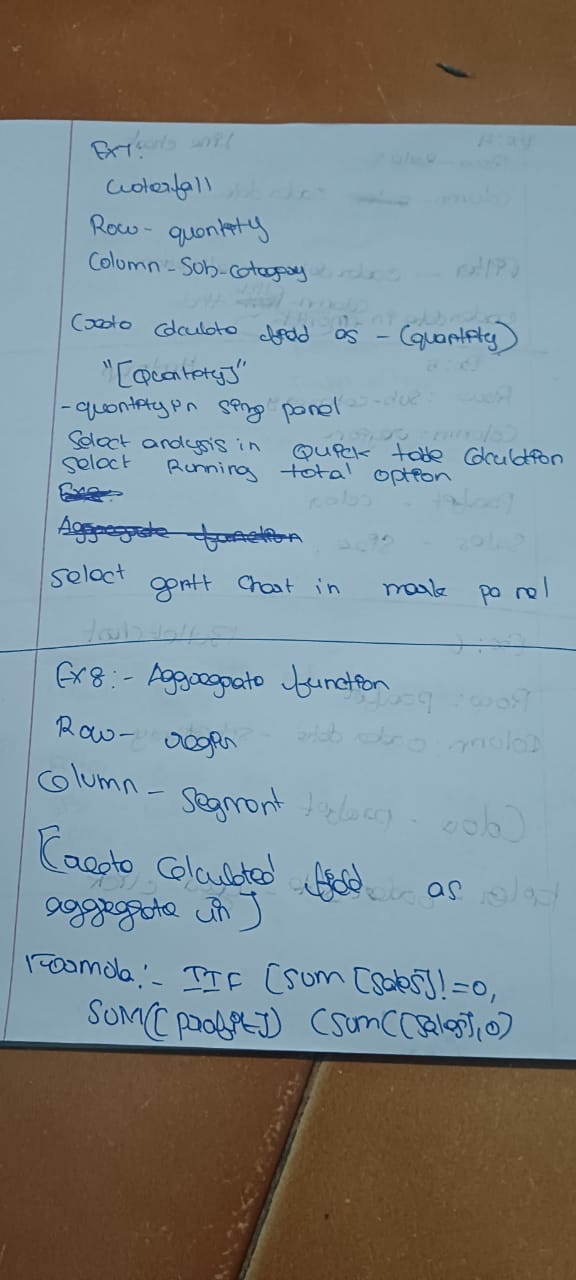 Ex7:
Waterfall
Row - quantity
Column - Sub-category
Create calculate field as - (quantity)
"[Quantity]"
- quantity in size panel
Select analysis in Quick table calculation
select Running total option
Aggregate function
Select gantt chart in mark panel
Ex 8:- Aggregate function
Row - region
Column - Segment
[create calculated field as
aggregate in]
Formula:- IIF [sum [sales]!=0,
SUM([profit]) (sum([sales],0)